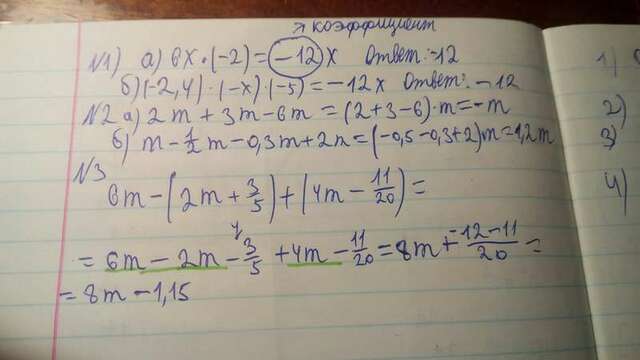 → коэффициент
N1) а) 6x·(-2)=-12x Ответ:-12
б)(-2,4)·(-x)·(-5)=-12x Ответ:-12
N2 а) 2m+3m-6m=(2+3-6)·m=-m
б) m-1/2m-0,3m+2m=(-0,5-0,3+2)m=1,2m
N3
6m-(2m+3/5)+(4m-11/20)=
4
=6m-2m-3/5+4m-11/20=8m+(-12-11)/20=
=8m-1,15
1)
2)
3)
4)